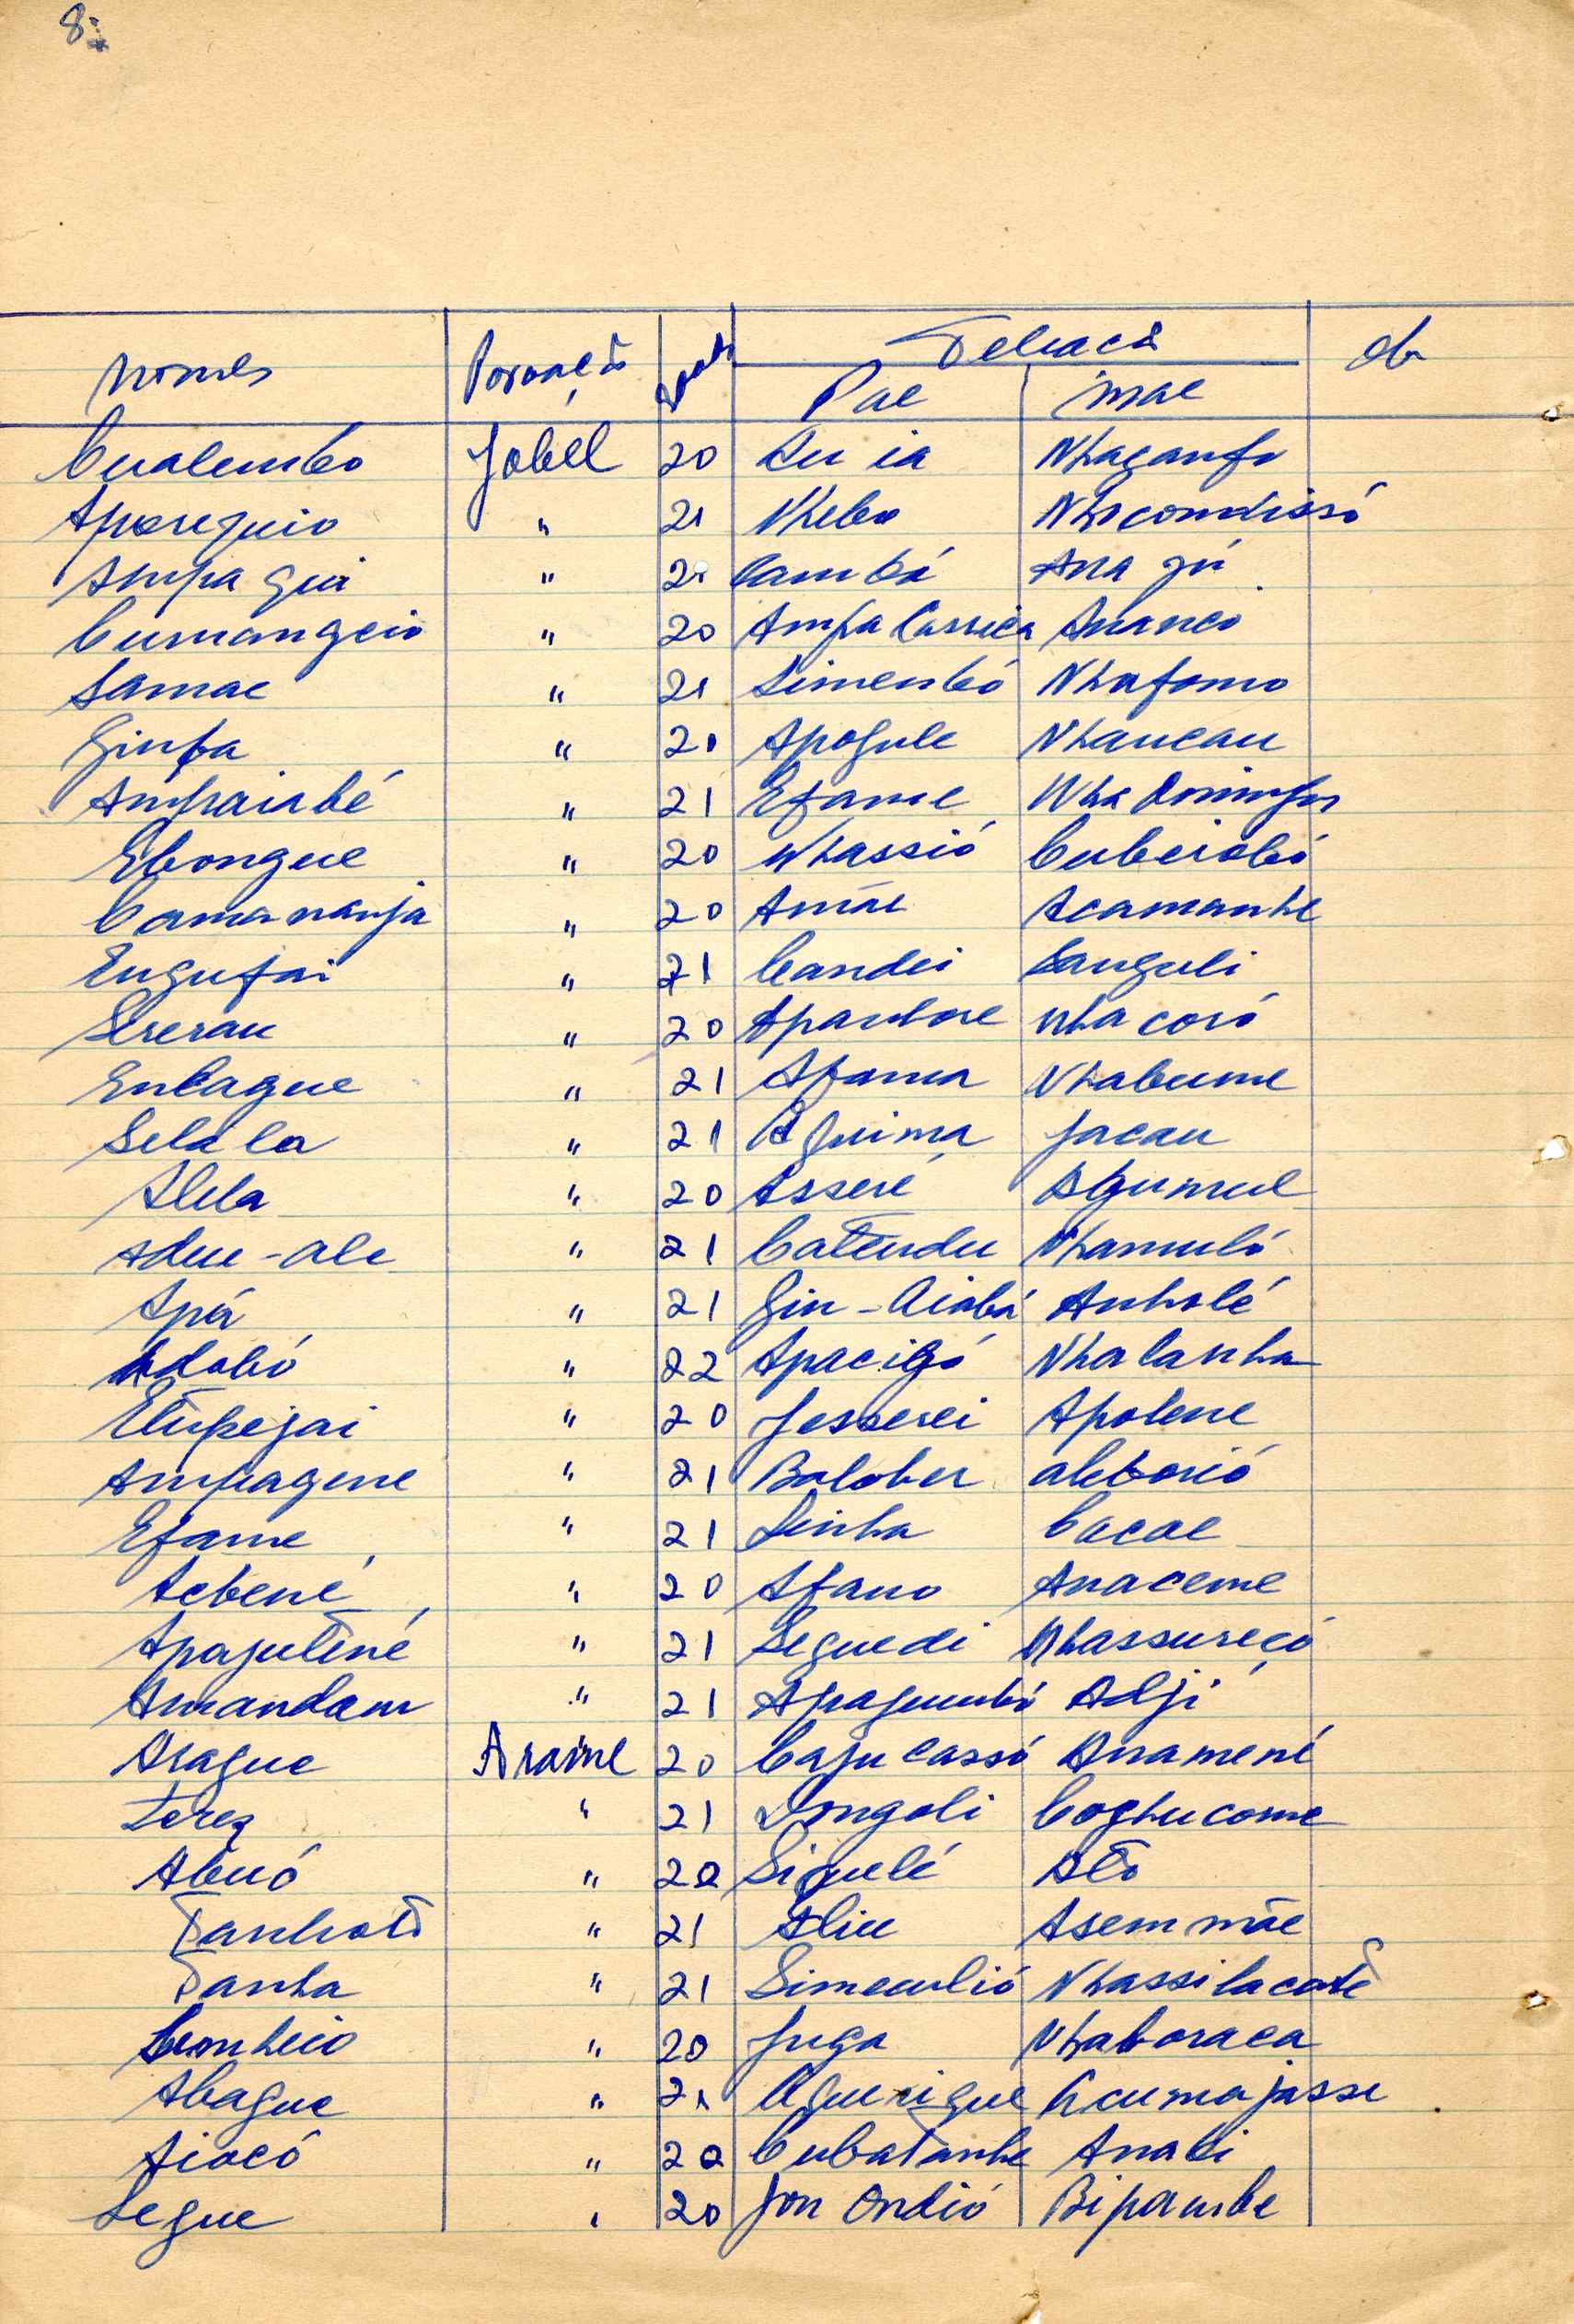 8
Nomes Povoação Idade Feliacã Ob
Pae Mae
Cualembo Jobel 20 Su ia Nhaganfo
Aparequio " 21 Nhebo Nhacondissó
Ampa Gui " 21 Cambá Ana Jú
Cumangeio " 20 Ampa Cassica Ananco
Samae " 21 Simenbó Nhafomo
Ginfa " 20 Apogule Nhaucau
Ampaiabé " 21 Efame Nha Domingos
Ebongue " 20 Nhassió Cubeiabó
Camananja " 20 Amãe Acamanhe
Engufai " 21 Candei Sanguli
Sereran " 20 Apanbore Nhacoró
Enbague " 21 Afama Nhabume
Selala " 21 Aguima Jacau
Alela " 20 Asseré Agumul
Adue-ale " 21 Catendu Nhamuló
Apá " 21 Gin-Aiabá Anholé
Adobó " 22 Apacigó Nhalanha
Etupejai " 20 Jesserei Apolene
Ampagene " 21 Balober aleborió
Efame " 21 Sinha Cacoe
Acbené " 20 Afano Anaceme
Apajutené " 21 Seguedi Nhassureçó
Amandam " 21 Apagumbó Adji
Arague Arame 20 Caju cassó Anamené
Terez " 21 Dongoli Coghucome
Abuó " 20 Siguelé Ato
Tanhoto " 21 Aliu Asem mãe
Tanha " 21 Simeculió Nhassilacote
Comheio " 20 Juga Nhaboraca
Abague " 21 Aguerigue Acumajasse
Aiocó " 20 Cubatanhe Anabi
Segue " 20 Jon Ondió Bipambe